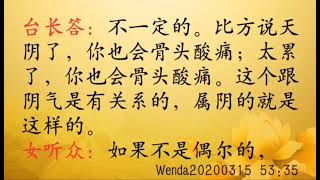 台长答：不一定的。比方说天
阴了，你也会骨头酸痛；太累
了，你也会骨头酸痛。这个跟
阴气是有关系的，属阴的就是
这样的。
女听众：如果不是偶尔的，
Wenda20200315 53:35